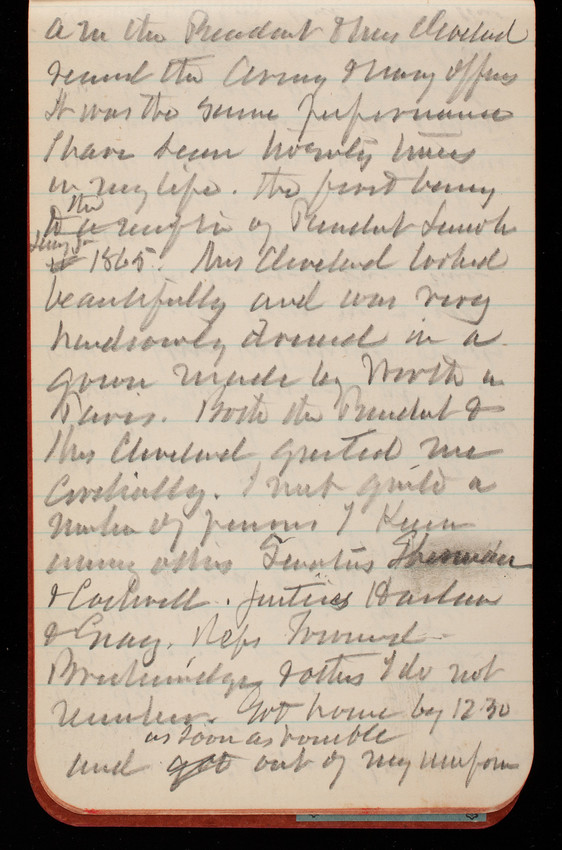 a m the President & Mrs Cleveland
receive the Army & Navy officers
It was the same performance
I have been twenty times
in my life. the first being
the
at a reception of President Lincoln
Jany 1865. Mrs Cleveland looked
beautifully and was very
handsomely dressed in a
gown made by Worth in
Paris. Both the President &
Mrs Cleveland greeted me
Cordially. I met quite a
number of persons I knew
among others Senators Sherman
& Cockrell. Justices Harlan
& Gray. Reps Townsend
Breckinridge & others I do not
remember. Got home by 12 30
as soon as possible
and got out of my uniform